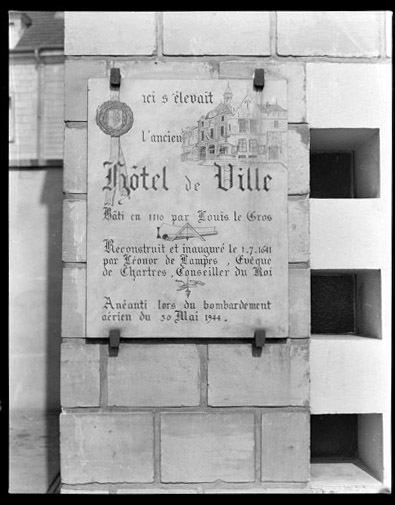 ici s'élevait
l'ancien
Hôtel de Ville
Bâti en 1110 par Louis le Gros
Reconstruit et inauguré le 1.7.1641
par Léonor de Estampes, Evêque
de Chartres, Conseiller du Roi
Anéanti lors du bombardement
aérien du 30 Mai 1944.